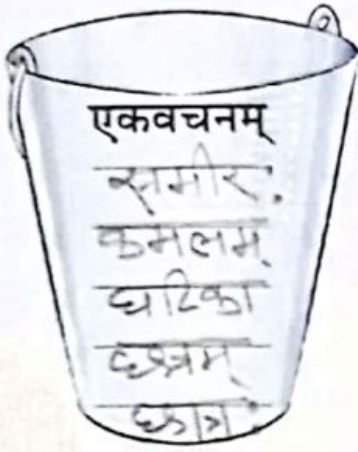 एकवचनम्
समीरः
कमलम्
घटिका
छत्रम्
छात्रः